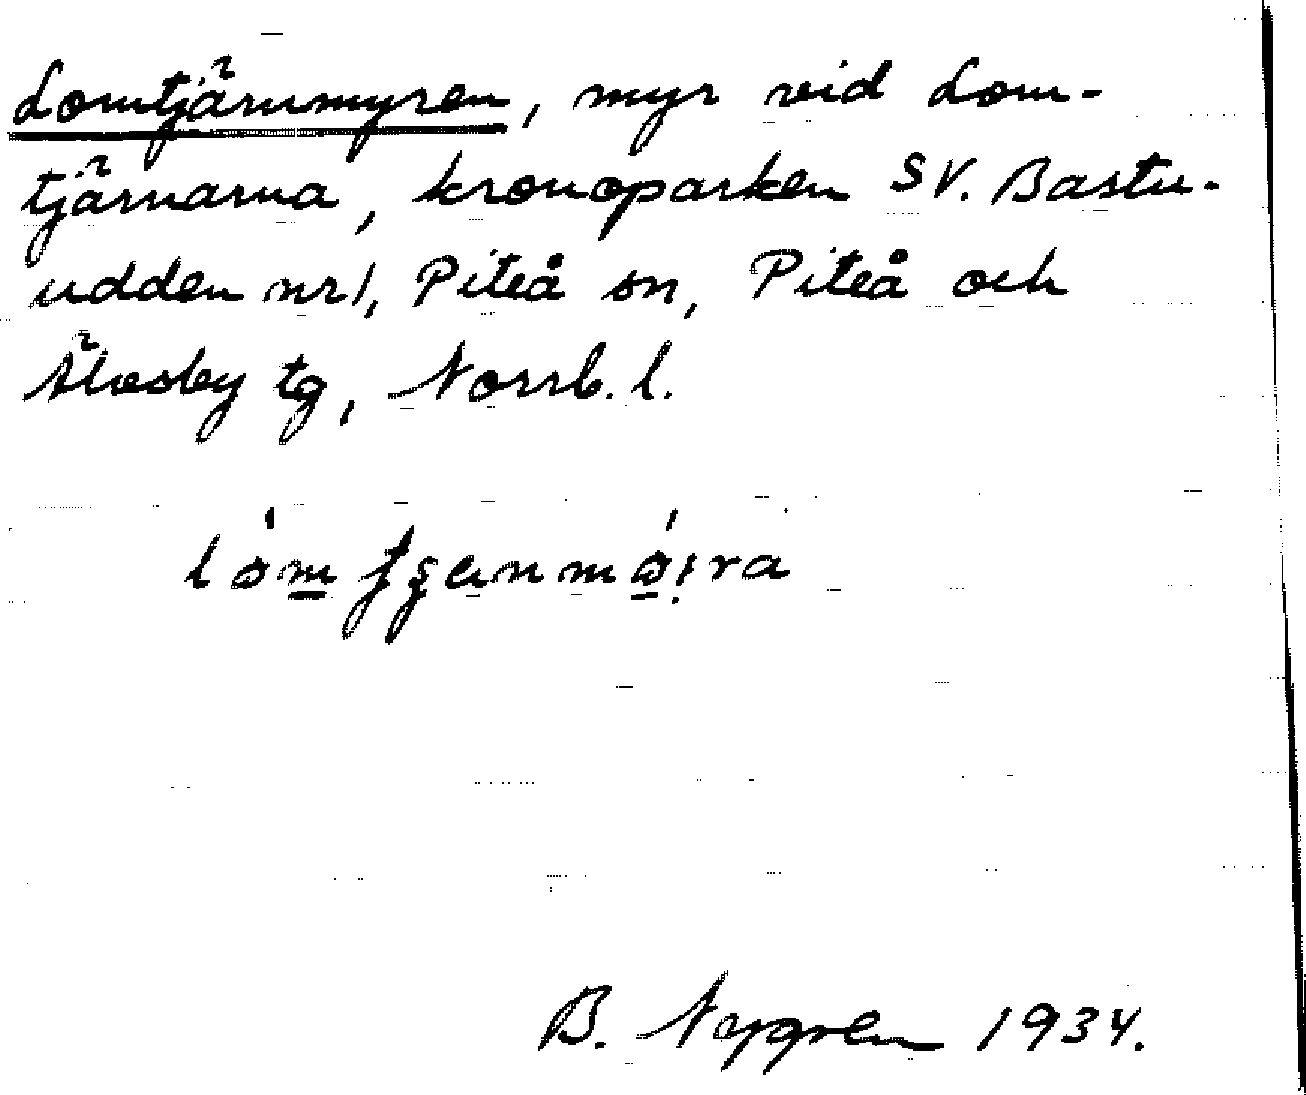 Lomtjärnmyren, myr vid Lom-
tjärnarna, kronoparken SV. Bastu-
udden nr 1, Piteå sn, Piteå och
Älvsby tg, Norrb. l.
B. Nygren 1934.